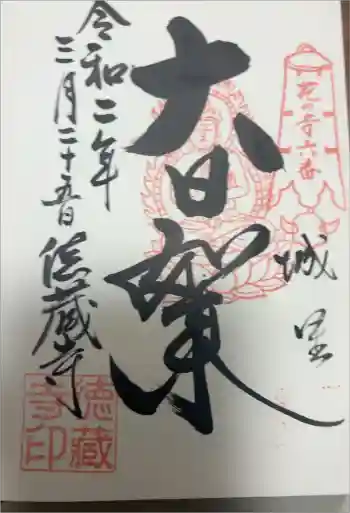 花の寺六番
城里
大日如来
令和二年
三月二十五日
徳蔵寺
徳蔵
寺印